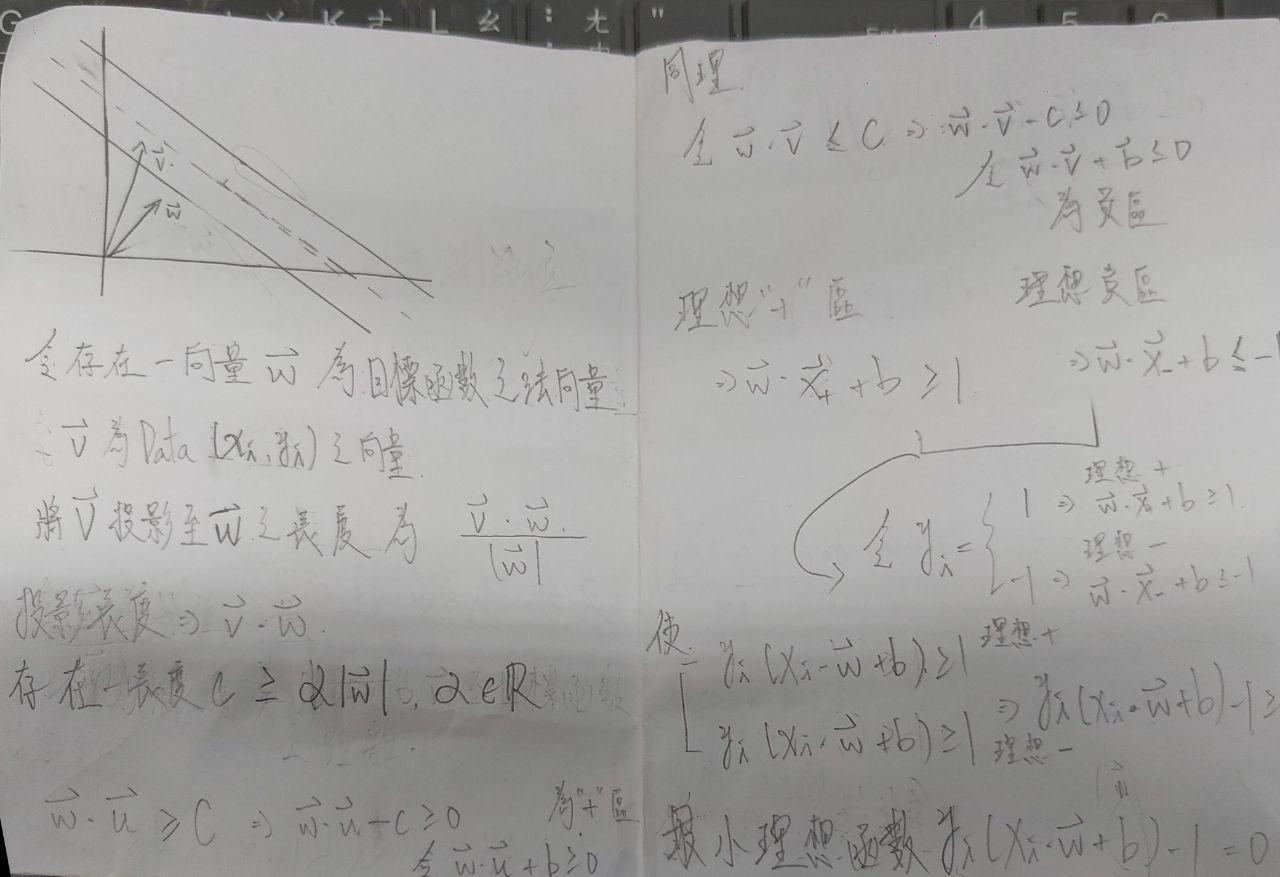 v⃗
w⃗
令存在一向量 w⃗ 為目標函數之法向量
v⃗ 為 Data (xᵢ, yᵢ) 之向量
將 v⃗ 投影至 w⃗ 之長度為 v⃗·w⃗ / |w⃗|
投影長度 ⇒ v⃗·w⃗
存在一長度 c ≥ α|w⃗|, α∈ℝ
w⃗·u⃗ ≥ C ⇒ w⃗·u⃗ - c ≥ 0 為"+"區
令 w⃗·u⃗ + b ≥ 0
同理
令 w⃗·v⃗ ≤ C ⇒ w⃗·v⃗ - C ≤ 0
令 w⃗·v⃗ + b ≤ 0
為負區
理想"+"區 理想負區
⇒ w⃗·x⃗₊ + b ≥ 1 ⇒ w⃗·x⃗₋ + b ≤ -1
理想 +
令 yᵢ = { 1 ⇒ w⃗·x⃗₊ + b ≥ 1
理想 -
-1 ⇒ w⃗·x⃗₋ + b ≤ -1
使
yᵢ(xᵢ·w⃗+b) ≥ 1 理想 +
yᵢ(xᵢ·w⃗+b) ≥ 1 理想 - ⇒ yᵢ(xᵢ·w⃗+b) - 1 ≥
最小理想函數 yᵢ(xᵢ·w⃗+b) - 1 = 0